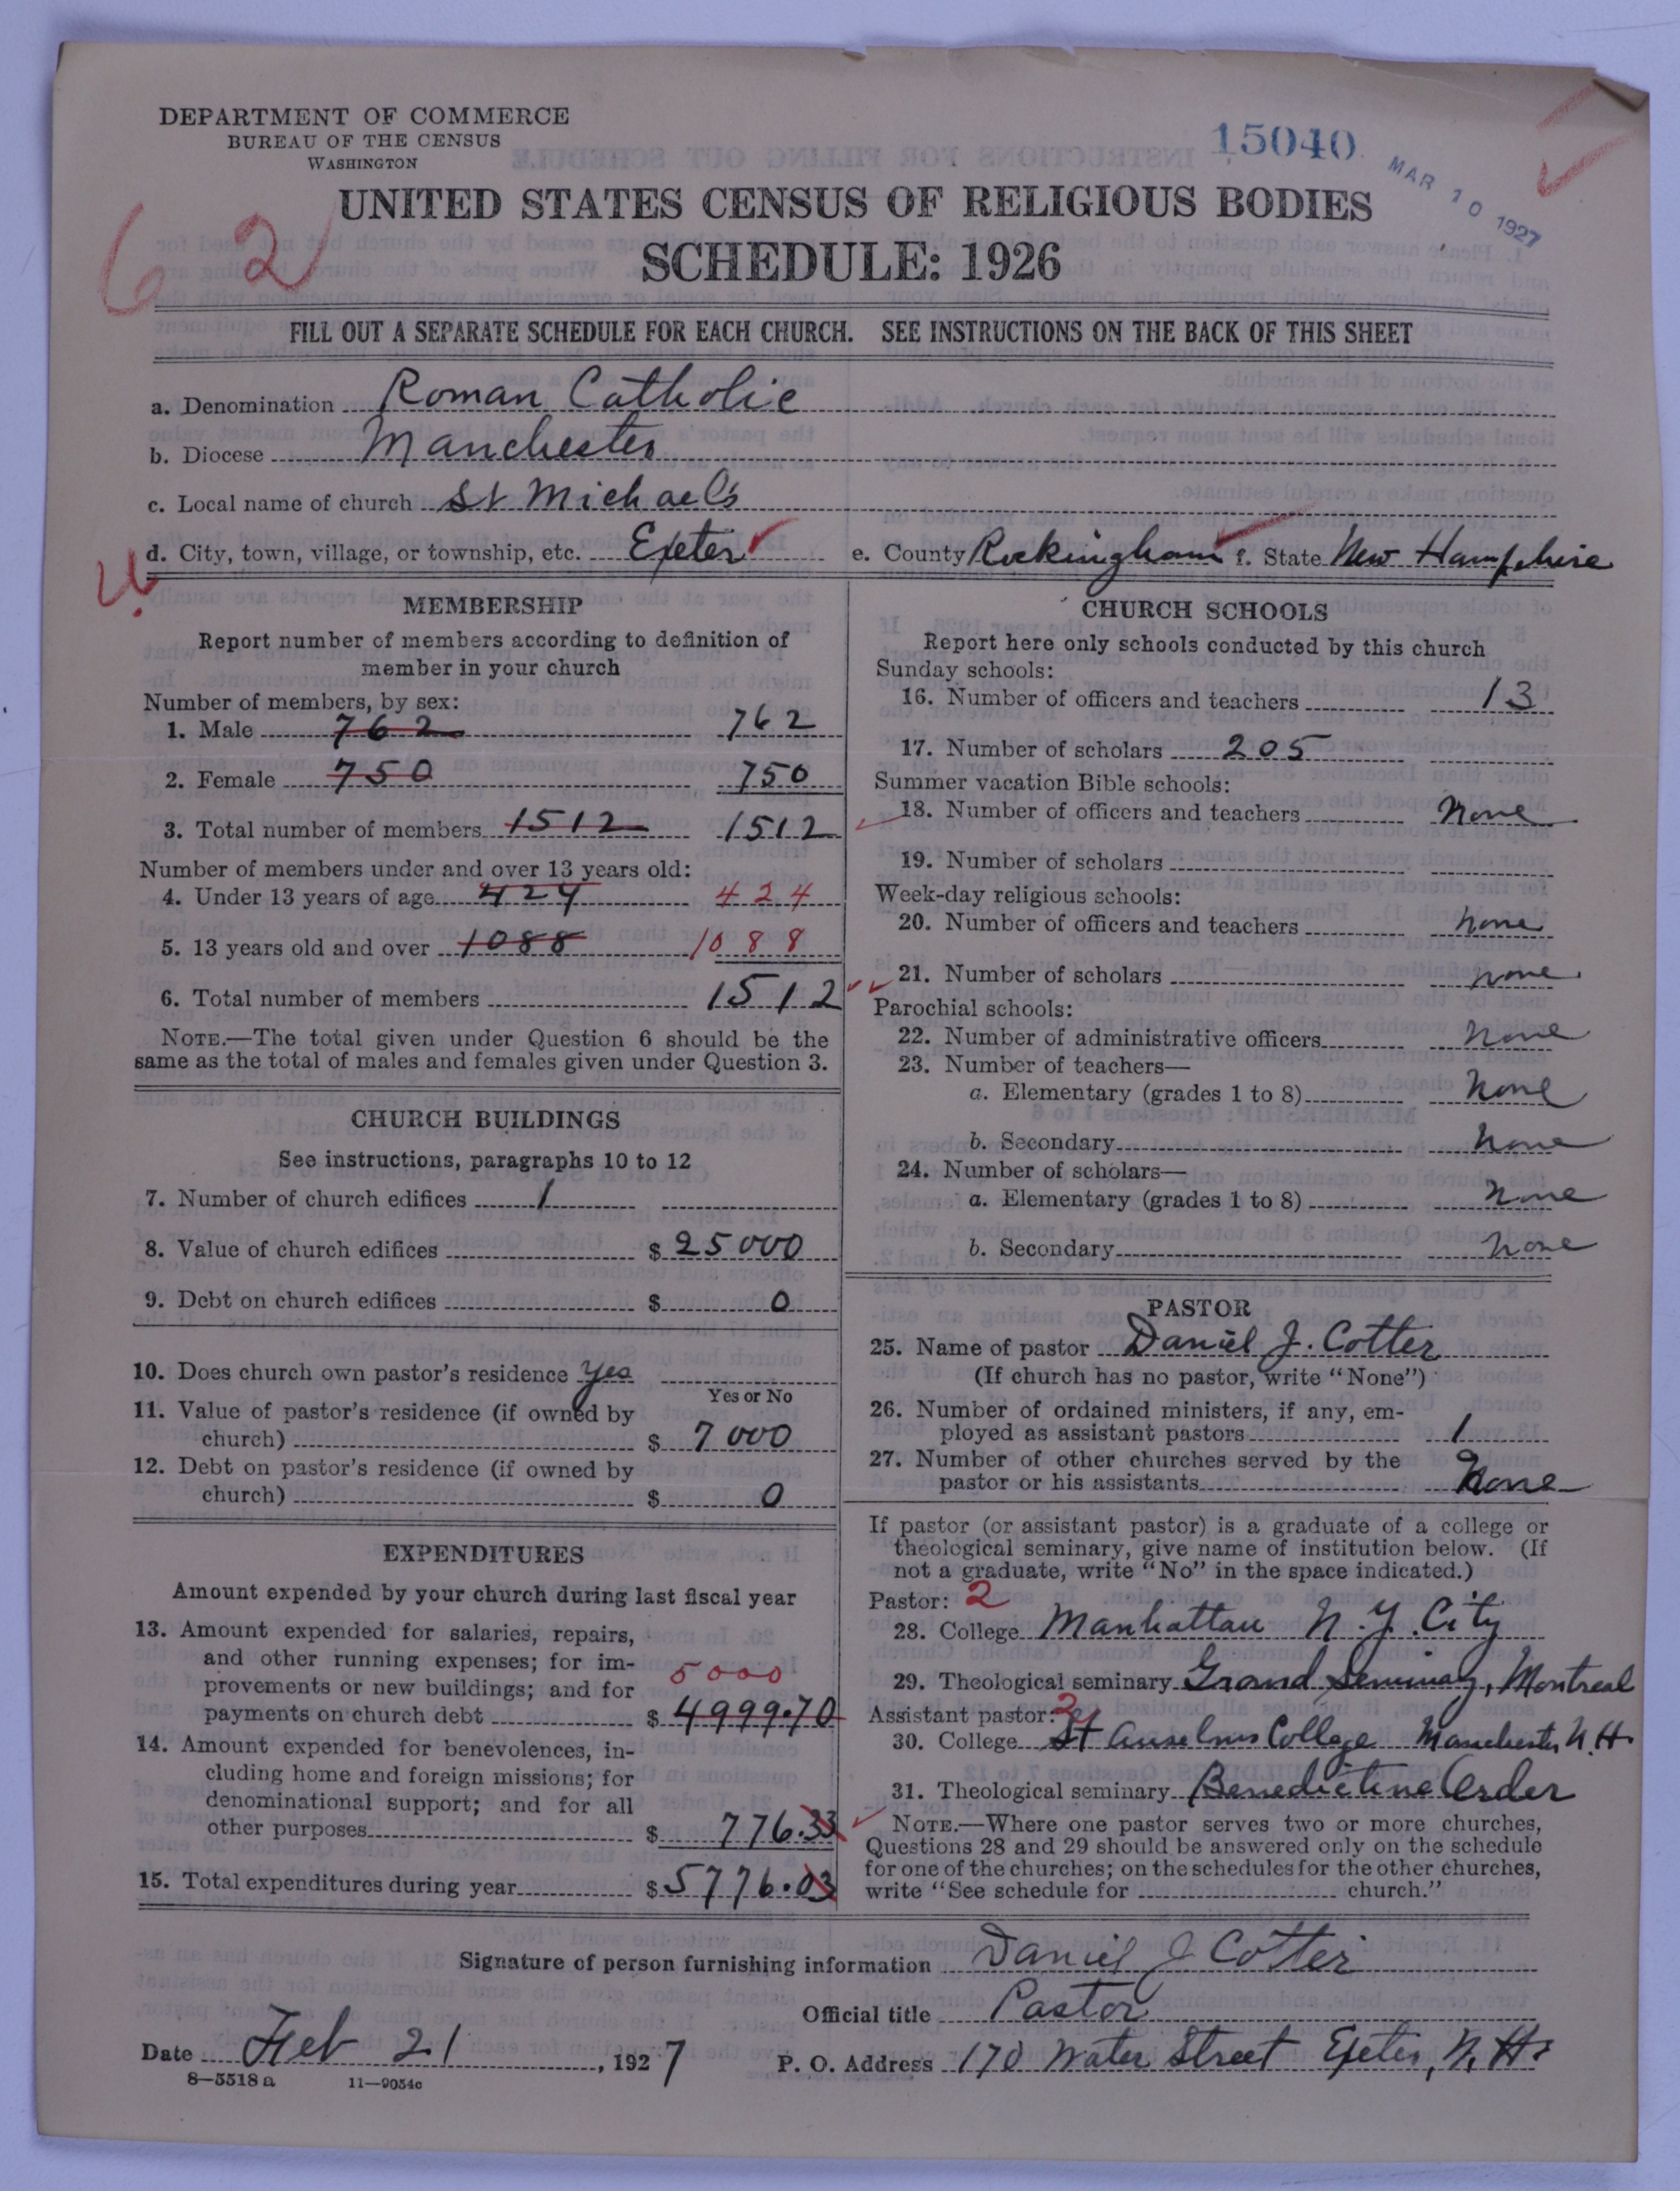 DEPARTMENT OF COMMERCE
BUREAU OF THE CENSUS
WASHINGTON
15040
MAR 10 1927
62
UNITED STATES CENSUS OF RELIGIOUS BODIES
SCHEDULE: 1926
FILL OUT A SEPARATE SCHEDULE FOR EACH CHURCH. SEE INSTRUCTIONS ON THE BACK OF THIS SHEET
a. Denomination Roman Catholic
b. Diocese Manchester
c. Local name of church St Michael's
d. City, town, village, or township, etc. Exeter e. County Rockingham f. State New Hampshire
MEMBERSHIP
Report number of members according to definition of
member in your church
Number of members, by sex:
1. Male 762 762
2. Female 750 750
3. Total number of members 1512 1512
Number of members under and over 13 years old:
4. Under 13 years of age 424 424
5. 13 years old and over 1088 1088
6. Total number of members 1512
NOTE.—The total given under Question 6 should be the
same as the total of males and females given under Question 3.
CHURCH BUILDINGS
See instructions, paragraphs 10 to 12
7. Number of church edifices 1
8. Value of church edifices $ 25000
9. Debt on church edifices $ 0
10. Does church own pastor's residence Yes
Yes or No
11. Value of pastor's residence (if owned by
church) $ 7000
12. Debt on pastor's residence (if owned by
church) $ 0
EXPENDITURES
Amount expended by your church during last fiscal year
13. Amount expended for salaries, repairs,
and other running expenses; for im-
provements or new buildings; and for 5000
payments on church debt $ 4999.70
14. Amount expended for benevolences, in-
cluding home and foreign missions; for
denominational support; and for all
other purposes $ 776.33
15. Total expenditures during year $ 5776.03
CHURCH SCHOOLS
Report here only schools conducted by this church
Sunday schools:
16. Number of officers and teachers 13
17. Number of scholars 205
Summer vacation Bible schools:
18. Number of officers and teachers None
19. Number of scholars
Week-day religious schools:
20. Number of officers and teachers None
21. Number of scholars None
Parochial schools:
22. Number of administrative officers None
23. Number of teachers—
a. Elementary (grades 1 to 8) None
b. Secondary None
24. Number of scholars—
a. Elementary (grades 1 to 8) None
b. Secondary None
PASTOR
25. Name of pastor Daniel J. Cotter
(If church has no pastor, write "None")
26. Number of ordained ministers, if any, em-
ployed as assistant pastors 1
27. Number of other churches served by the
pastor or his assistants None
If pastor (or assistant pastor) is a graduate of a college or
theological seminary, give name of institution below. (If
not a graduate, write "No" in the space indicated.)
Pastor: 2
28. College Manhattan N.Y. City
29. Theological seminary Grand Seminary, Montreal
Assistant pastor: 2
30. College St Anselms College Manchester N.H.
31. Theological seminary Benedictine Order
NOTE.—Where one pastor serves two or more churches,
Questions 28 and 29 should be answered only on the schedule
for one of the churches; on the schedules for the other churches,
write "See schedule for church."
Signature of person furnishing information Daniel J Cotter
Official title Pastor
Date Feb 21, 1927 P. O. Address 170 Water Street Exeter, N.H.
8—5518a 11—9054c